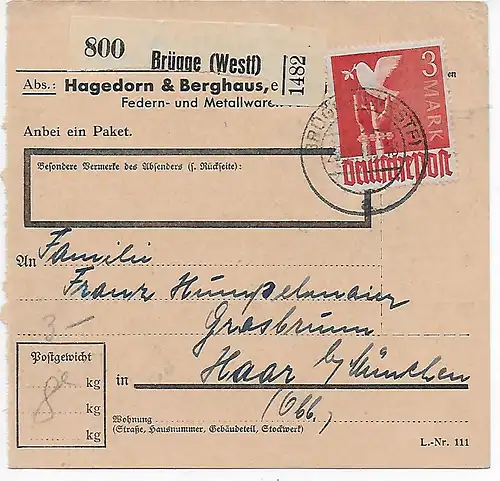 800 Brügge (Westf) 1482
Abs.: Hagedorn & Berghaus, e en
Federn- und Metallware
3 MARK
Deutsche Post
BRÜGGE (WESTF)
a
Anbei ein Paket.
Besondere Vermerke des Absenders (s. Rückseite):
An Familie
Franz Humpelmaier
Grasbrunn
3-
Postgewicht
8 kg
kg
kg
in Haar b/ München
(Obb.)
Wohnung
(Straße, Hausnummer, Gebäudeteil, Stockwerk)
L.-Nr. 111